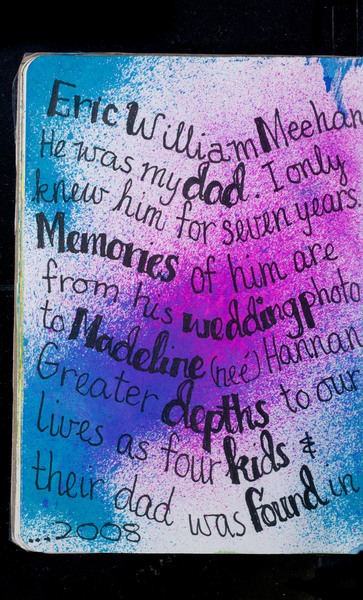 Eric William Meehan
He was my dad. I only
knew him for seven years.
Memories of him are
from his wedding photo
to Madeline (neé) Hannan
Greater depths to our
lives as four kids &
their dad was found in
...2008